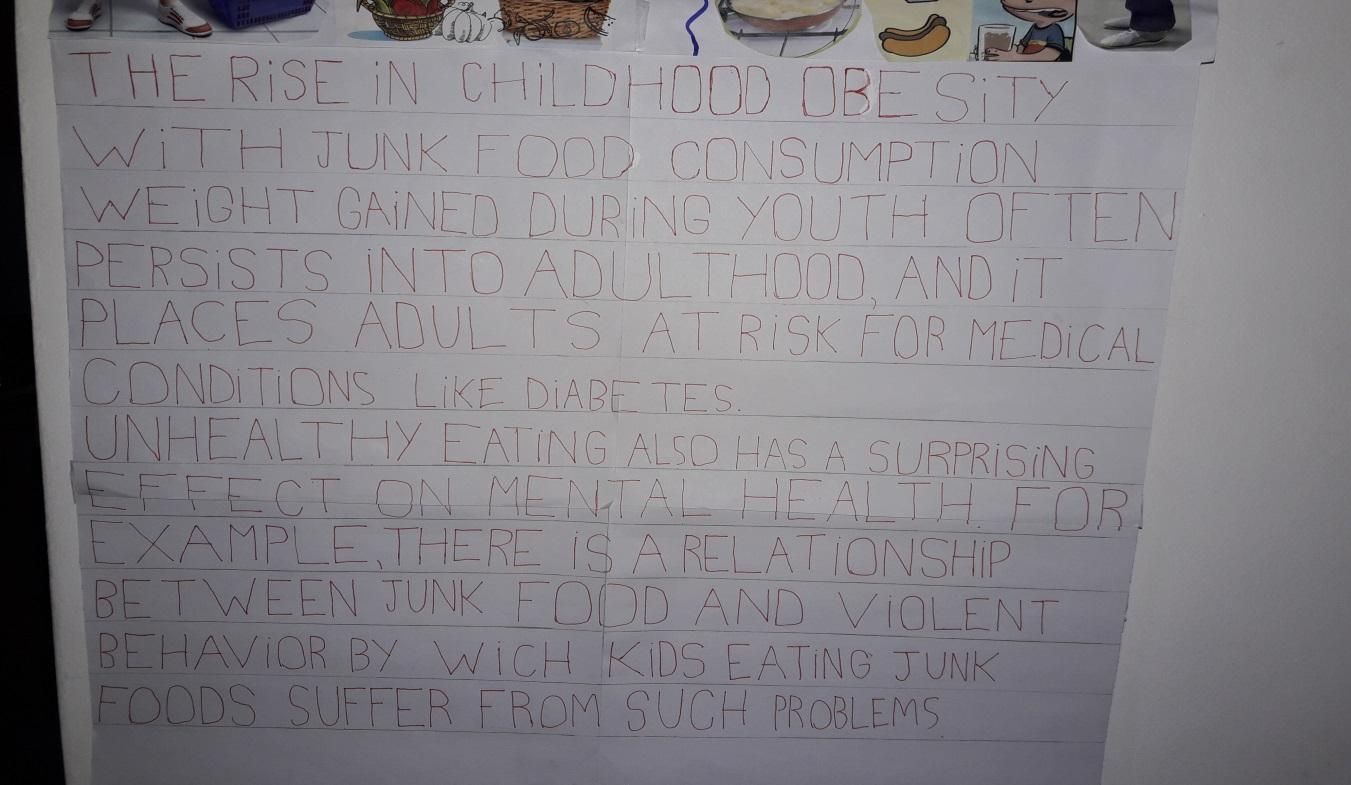 THE RiSE iN CHiLDHOOD OBESiTY
WiTH JUNK FOOD CONSUMPTiON
WEiGHT GAiNED DURiNG YOUTH OFTEN
PERSiSTS iNTO ADULTHOOD, AND iT
PLACES ADULTS AT RiSK FOR MEDiCAL
CONDiTiONS LiKE DiABETES.
UNHEALTHY EATiNG ALSO HAS A SURPRiSiNG
EFFECT ON MENTAL HEALTH. FOR
EXAMPLE, THERE iS A RELATiONSHiP
BETWEEN JUNK FOOD AND ViOLENT
BEHAViOR BY WiCH KiDS EATiNG JUNK
FOODS SUFFER FROM SUCH PROBLEMS.